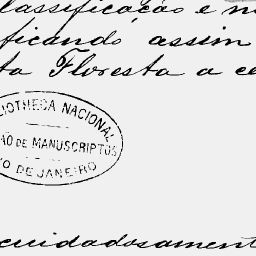 lassificação e n
ficando, assim
ta Floresta a ce
LIOTHECA NACIONAL
ÃO DE MANUSCRIPTOS
IO DE JANEIRO
cuidadosament